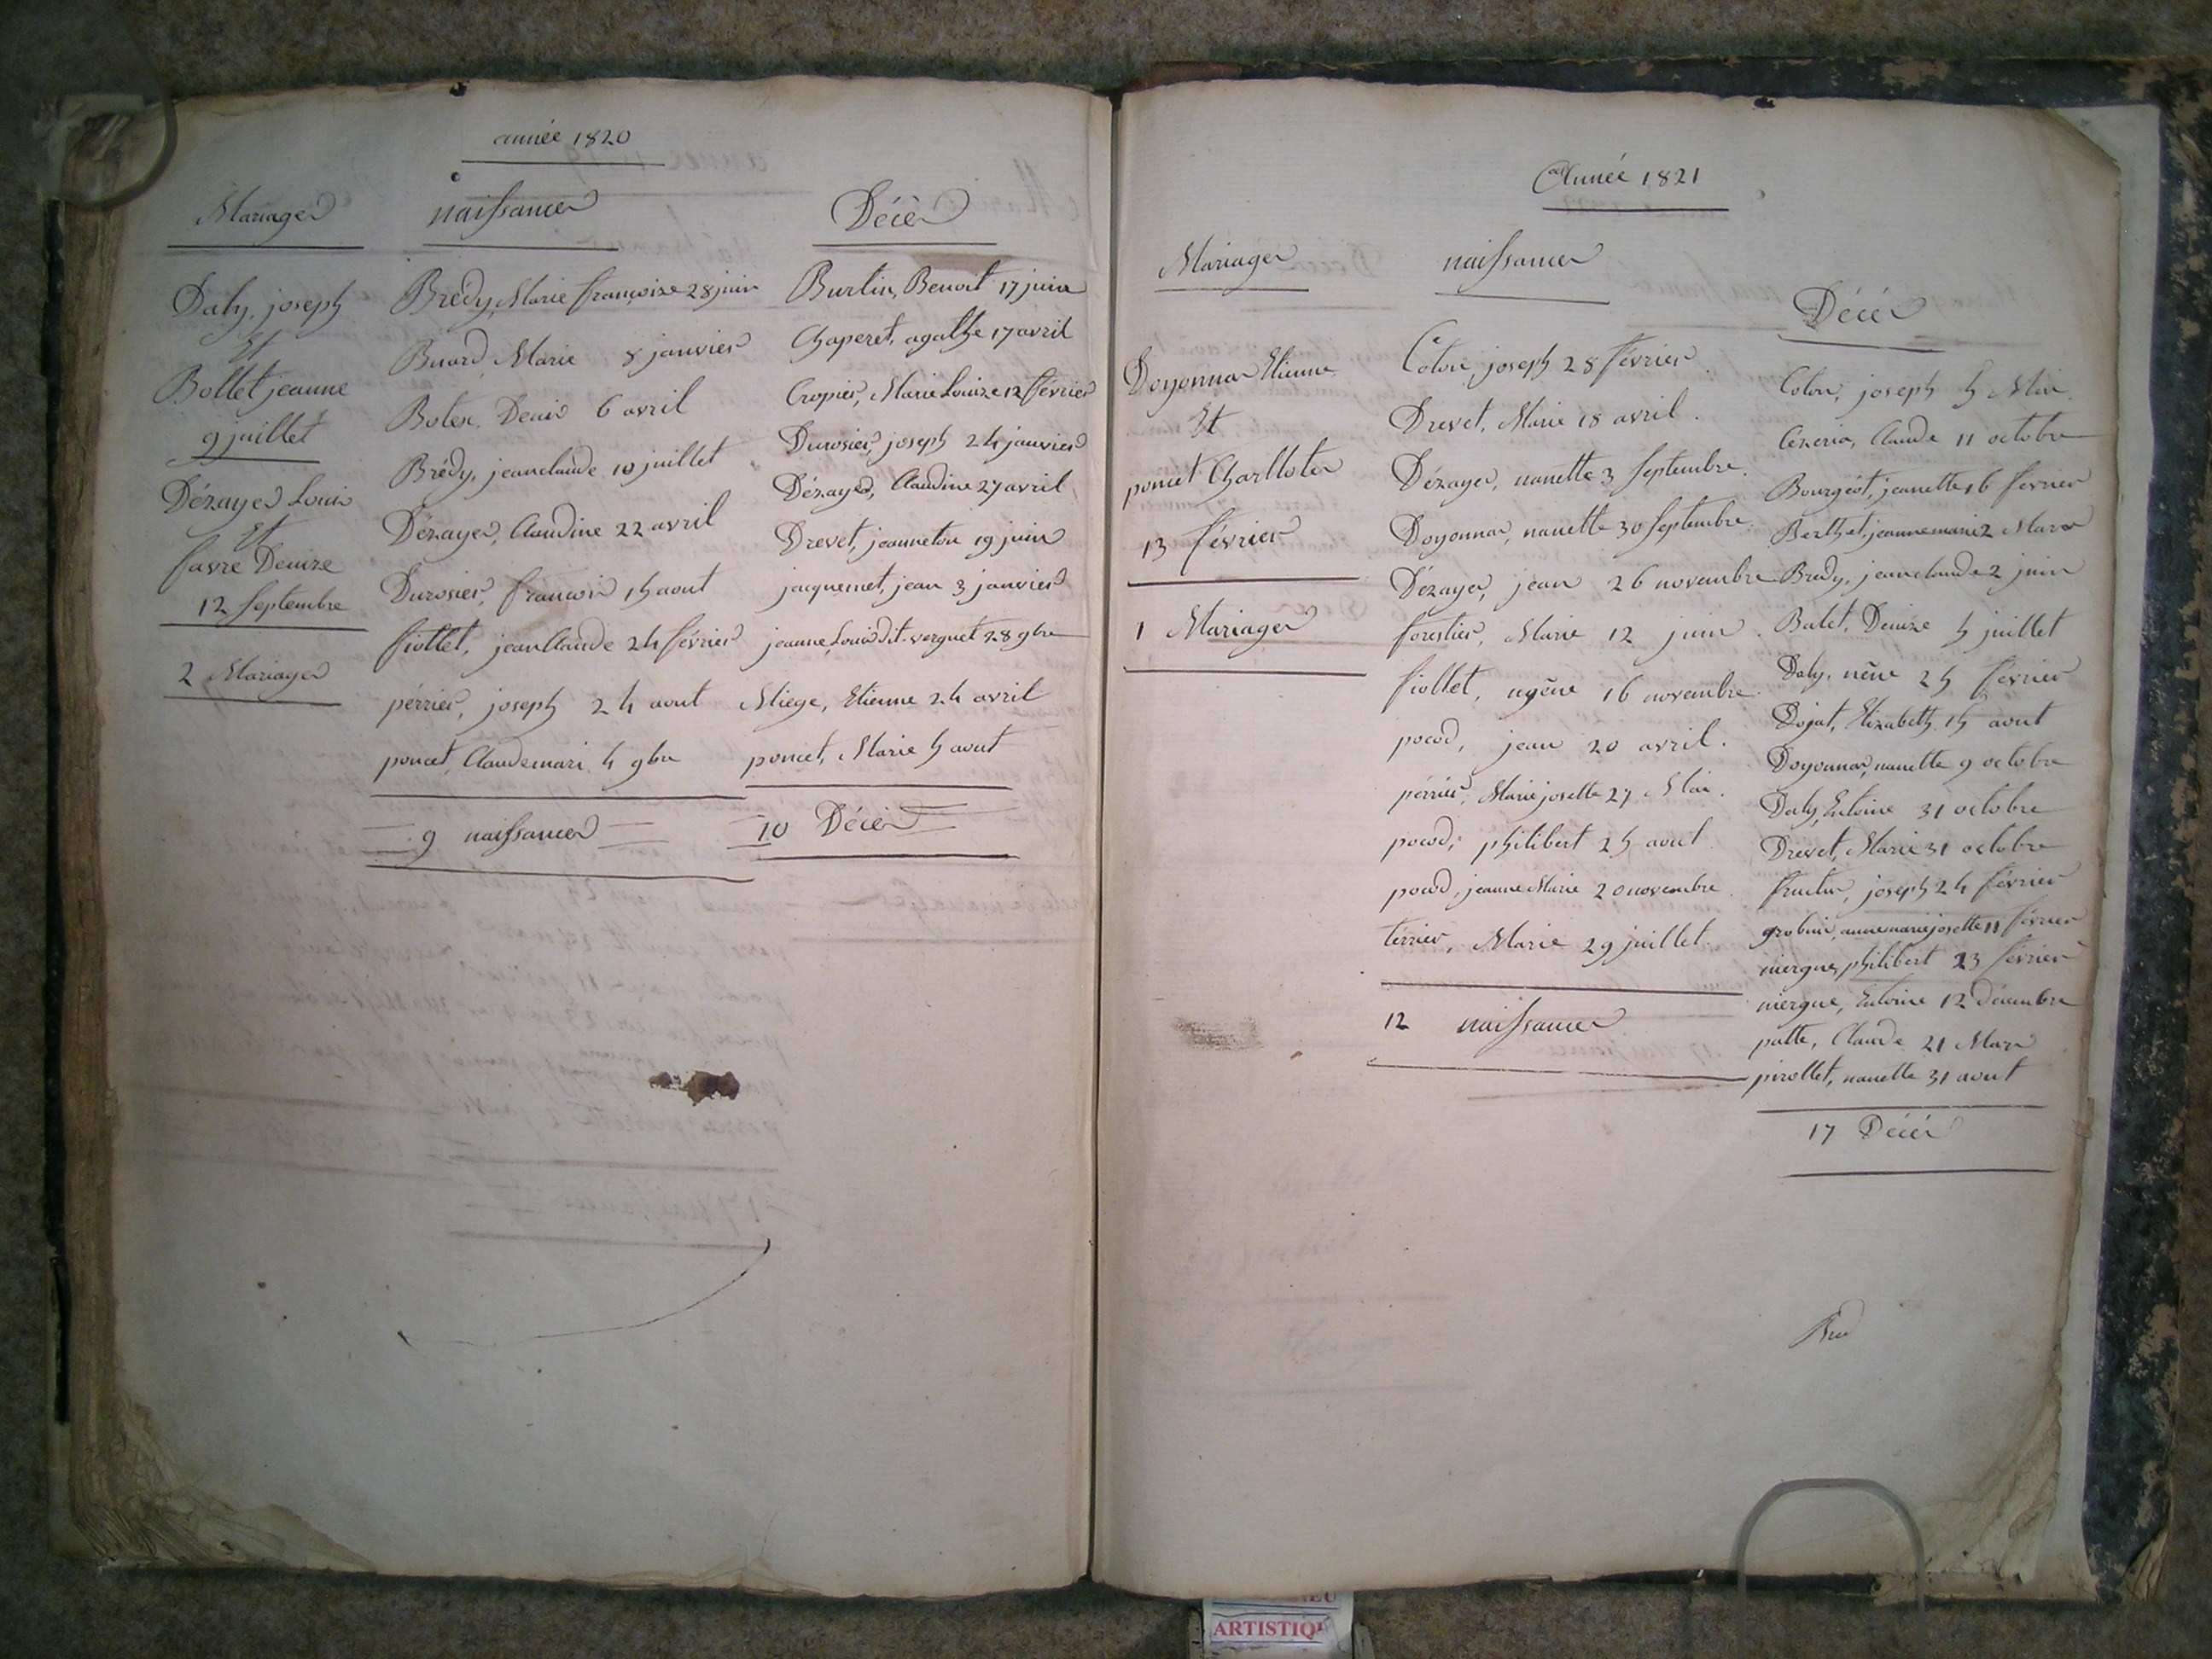 année 1820
Mariages
Daly, joseph
Et
Bollet jeanne
9 juillet
Dézayes Louis
Et
favre Denize
12 Septembre
2 Mariages
naissances
Brédy, Marie françoise 28 juin
Buard, Marie 8 janvier
Botex, Denis 6 avril
Brédy, jeanclaude 10 juillet
Dézayes, Claudine 22 avril
Durosier, françois 15 aout
fiollet, jeanClaude 24 février
périer, joseph 24 aout
poncet, Claudemari 4 9bre
9 naissances
Décès
Burlin, Benoit 17 juin
Chaperet, agathe 17 avril
Cropier, Marie Louize 12 février
Durosier, joseph 24 janvier
Dézayes, Claudine 27 avril
Drevet, jeanneton 19 juin
jacquemet, jean 3 janvier
jeanne, Louis dit verguet 28 9bre
Miége, Etienne 24 avril
poncet, Marie 5 aout
10 Décès
Année 1821
Mariages
Doyonnas Etienne
Et
poncet Charllotes
13 février
1 Mariages
naissances
Coton, joseph 28 février
Drevet, Marie 18 avril.
Dézayes, nanette 3 Septembre.
Doyonnas, nanette 30 Septembre.
Dézayes, jean 26 novembre
forestier, Marie 12 juin.
fiollet, 16 novembre.
pocod, jean 20 avril.
périer, Marie josette 27 Mai.
pocod, philibert 25 aout
pocod, jeanne Marie 20 novembre
terrier, Marie 29 juillet.
12 naissances
Décés
Coton, joseph 5 Mai.
Cezeria, Claude 11 octobre
Bourgeot, jeanette 16 février
Berthet, jeannemarie 2 Mars
Brédy, jeanclaude 2 juin
Balet, Denize 5 juillet
Daly, 25 février
Dojat, Elizabeth 15 aout
Doyonnas, nanette 9 octobre
Daly, Entoine 31 octobre
Drevet, Marie 31 octobre
joseph 24 février
grobuis, annemariejosette 11 février
niergue, philibert 23 février
niergue, Entoine 12 décembre
patte, Claude 21 Mars
pirollet, nanette 31 aout
17 Décés
ARTISTIQ